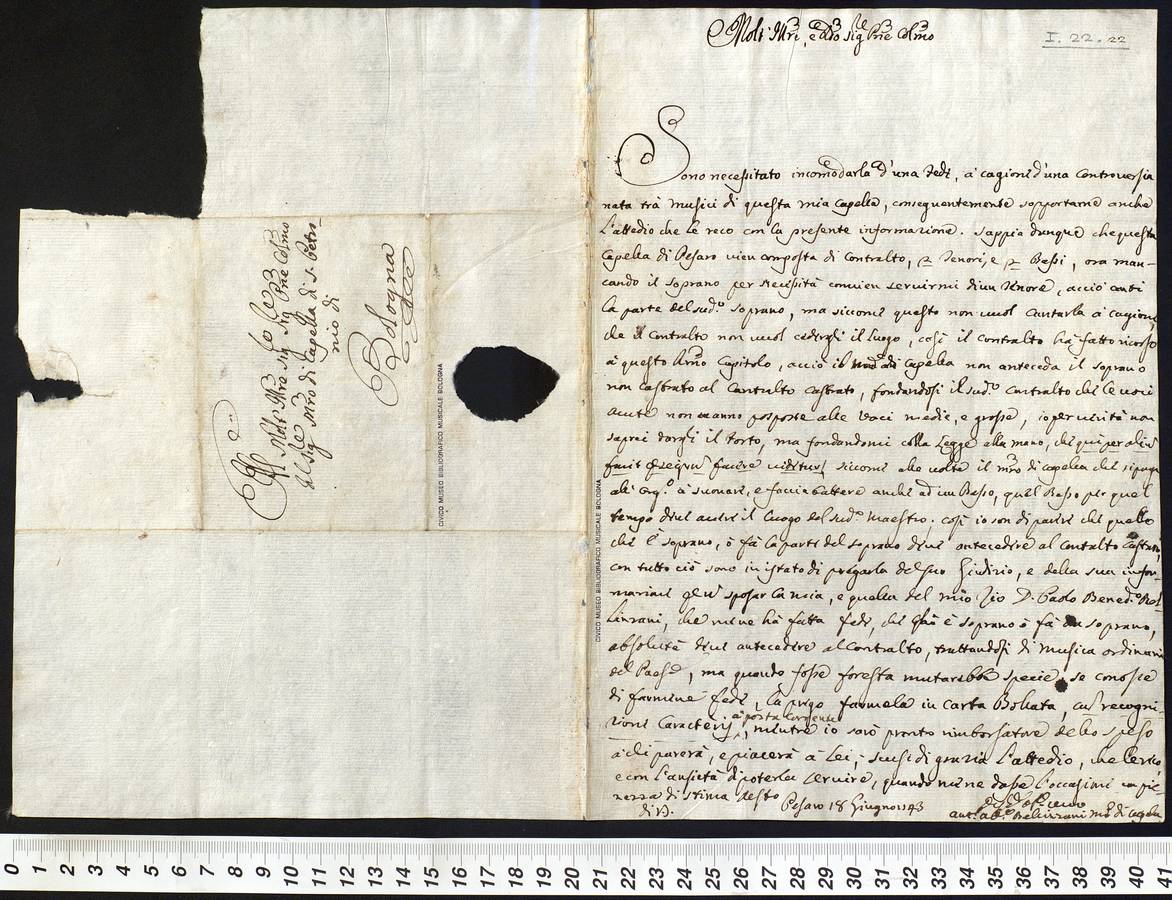 Molt' Illre, e Rdo Sig Pne Colmo
I. 22. 22
Sono necessitato incomodarla d'una Fede, à cagione d'una controversia
nata trà Musici di questa mia Capella, conseguentemente sopportarne anche
l'attedio che le reco con la presente informazione. Sappia dunque che questa
Capella di Pesaro vien composta di Contralto, 2 Tenori, e 2 Bassi, ora man-
cando il soprano per necessità convien servirmi d'un Tenore, acciò canti
la parte del sud.º soprano, ma siccome questo non vuol cantarla à cagione,
che il Contralto non vuol cedergli il luogo, così il contralto hà fatto ricorso
à questo Capitolo, acciò il di Capella non anteceda il soprano
non castrato al Contralto castrato, fondandosi il sud.º contralto che le voci
acute non vanno posposte alle voci medie, e grosse, io per verità non
saprei dargli il torto, ma fondandomi colla Legge alla mano, che qui per alium
facit per se ipsum facere videtur, siccome alle volte il mro di capella
à suonare, e faccia battere anche ad un Basso, quel Basso per quel
tempo deve avere il luogo del sud.º Maestro, così io son di parere che quello
che è soprano, ò fà la parte del soprano deve antecedere al contralto castrato,
con tutto ciò sono in istato di pregarla del suo Giudizio, e della sua
la mia, e quella del mio Zio D. Paolo Bened.º Bel-
linzani, che me ne hà fatta fede, che è soprano ò fà da soprano,
absolutè deve antecedere al Contralto, trattandosi di Musica ordinaria
del Paese, ma quando fosse foresta mutarebbe specie, se conosce
di farmene fede, la prego farmela in carta Bollata, cum recogni-
tione Caracteris, mentre io sarò pronto rimborsatore dello speso
à chi parerà, e piacerà à Lei, scusi di grazia l'attedio, che le reco,
e con l'ansietà di poterla servire, quando me ne dasse l'occasione in pie-
nezza di stima resto
di V.S. Pesaro 18 Giugno 1743
Bellinzani Mro di Capella
Al Molt' Illre
Al Sig Mro di Capella di S. Petro-
nio di
Bologna
CIVICO MUSEO BIBLIOGRAFICO MUSICALE BOLOGNA
CIVICO MUSEO BIBLIOGRAFICO MUSICALE BOLOGNA
0 1 2 3 4 5 6 7 8 9 10 11 12 13 14 15 16 17 18 19 20 21 22 23 24 25 26 27 28 29 30 31 32 33 34 35 36 37 38 39 40 41